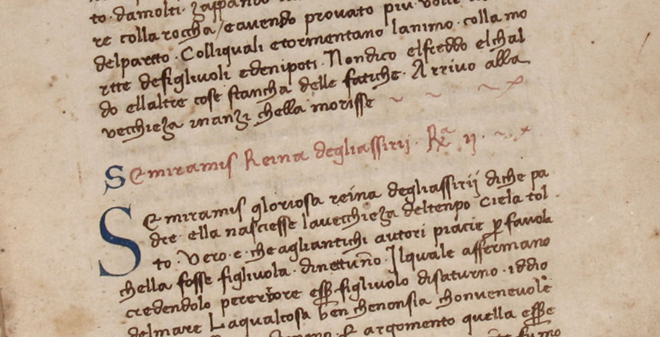 to. damolti. zappando
re colla roccha / eavendo provato piu volte
delparto. Colliquali etormentano lanimo. colla mo
rtte defiglivoli edenipoti. Nondico elfreddo elchal
do ellaltre cose stancha delle fatiche. Arrivo alla
vechieza inanzi chella morisse
Semiramis Reina degliassirij. Rᵃ ij.
Semiramis gloriosa reina degliassirij diche pa
dre ella nasciesse lavechieza deltenpo ciela tol
to. vero. e. che agliantichi autori piacie ꝑ favola
chella fosse figlivola. dinettuno. Ilquale affermano
credendolo pererrore essẽ figlivolo disaturno. iddio
delmare Laqualcosa benchenonsia chonvenevole
argomento quella essẽ